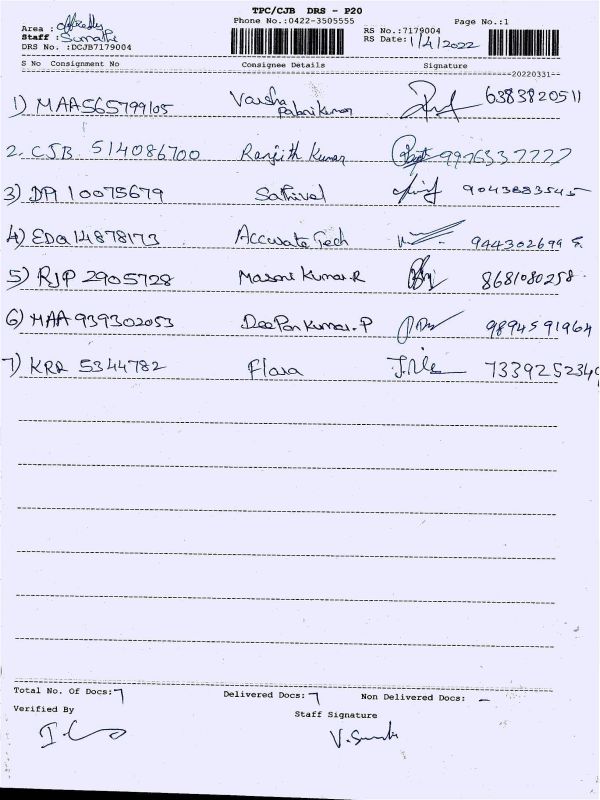 TPC/CJB DRS - P20
Phone No.:0422-3505555 Page No.:1
Area :
Staff : Sumathi RS No.:7179004
DRS No. :DCJB7179004 RS Date: 1/4/2022
S No Consignment No Consignee Details Signature
--20220331--
1) MAA565799105 Varsha 6383820511
2. CJB 514086700 Ranjith Kumar 9976337777
3) DPI 10075679 Sathivel 9043883545
4) EDQ14878173 Accurate Tech 944302699
5) RJP 2905728 Masani Kumar.R 8681080258
6) MAA 939302053 DeePan Kumar.P 9894591964
7) KRR 5344782 Flara 7339252349
Total No. Of Docs: 7 Delivered Docs: 7 Non Delivered Docs: -
Verified By Staff Signature